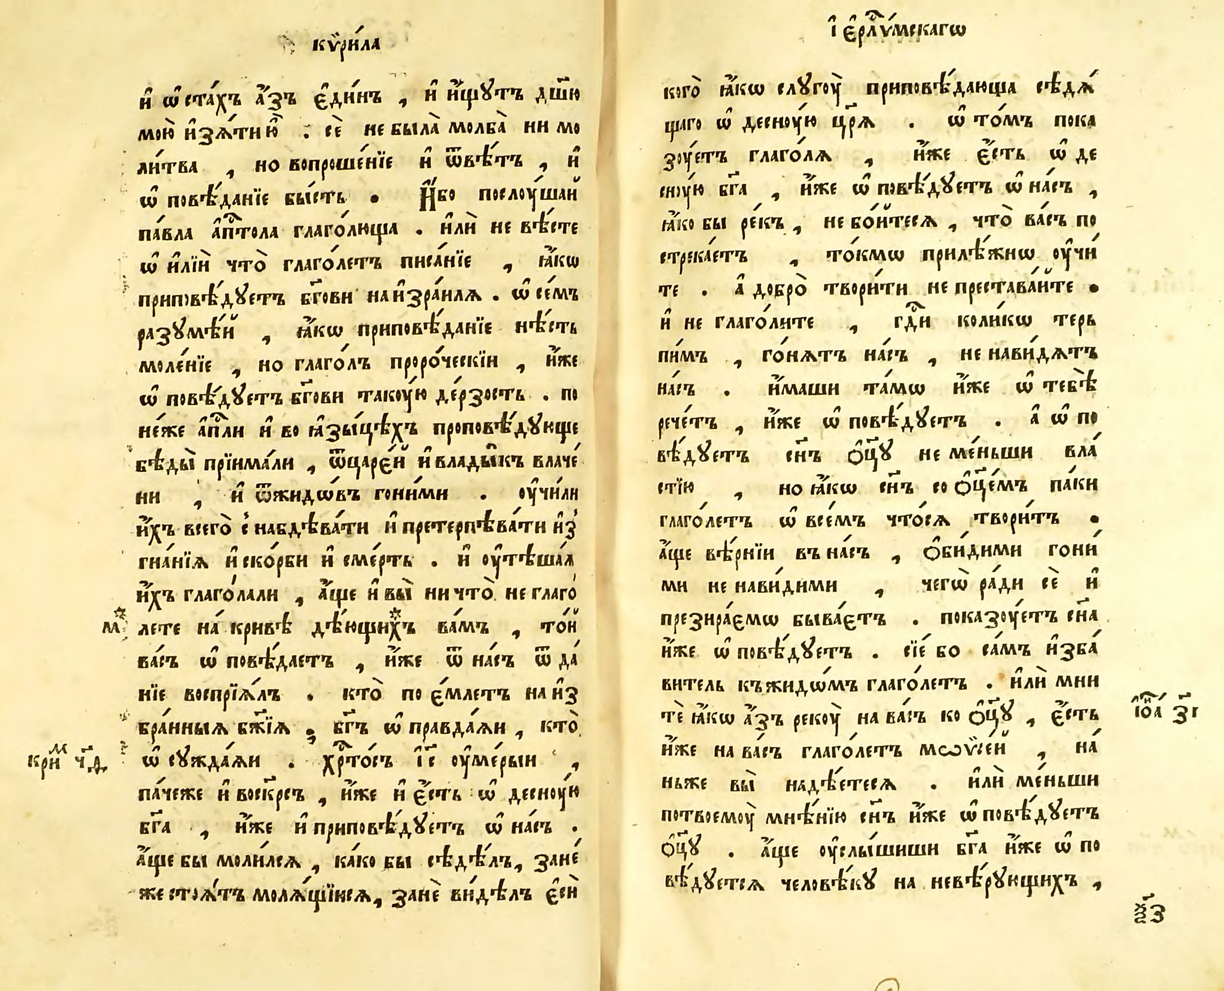 кѷри́ла
и҆ ѡ҆ста́хъ а҆́зъ є҆ди́нъ , и҆ и҆́щꙋтъ дш҃ю
мою̀ и҆зѧ́ти ю҆̀ . сѐ не была̀ молба̀ ни мо
ли́тва , но вопроше́нїе и҆ ѿвѣ́тъ , и҆
ѡ҆ повѣ́данїе бы́сть . И҆́бо послоу́шай
па́вла а҆пⷭ҇тола глаго́люща . и҆лѝ не вѣ́сте
ѡ҆ и҆лїѝ что̀ глаго́летъ писа́нїе , ꙗ҆́кѡ
приповѣ́дꙋетъ бг҃ови на и҆зра́илѧ . ѡ҆ се́мъ
разꙋмѣ́й , ꙗ҆́кѡ приповѣ́данїе нѣ́сть
моле́нїе , но глаго́лъ проро́ческїи , и҆́же
ѡ҆ повѣ́дꙋетъ бг҃ови такоу́ю де́рзость . по
не́же а҆пⷭ҇ли и҆ во ꙗ҆зы́цѣхъ проповѣ́дꙋюще
бѣды̀ прїима́ли , ѿцаре́й и҆ влады́къ влаче́
ни , и҆ ѿжидѡ́въ гони́ми . оу҆чи́ли
и҆́хъ всего̀ є҆̀ набдѣва́ти и҆ претерпѣва́ти и҆з̾
гна́нїѧ и҆ ско́рби и҆ сме́рть . и҆ оу҆тѣша́ѧ
и҆́хъ глаго́лали , а҆́ще и҆ вы̀ ничто̀ не глаго́
м лете на́ кривѣ дѣ́ющихъ ва́мъ , то́й
ва́съ ѡ҆ повѣ́даетъ , и҆́же ѿ на́съ ѿ да́
нїе воспрїѧ́лъ . кто̀ по є҆́млетъ на и҆з̾
бра́нныѧ бж҃їѧ , бг҃ъ ѡ҆ правда́ѧи , кто̀
кри м ч҃д ѡ҆ сꙋжда́ѧи . хрⷭ҇то́съ і҆с҃ оу҆ме́рыи ,
па́чеже и҆ воскр҃съ , и҆́же и҆ є҆́сть ѡ҆ десноу́ю
бг҃а , и҆́же и҆ приповѣ́дꙋетъ ѡ҆ на́съ .
а҆́ще бы моли́лсѧ , ка́ко бы сѣдѣ́лъ , занѐ
же стоѧ́тъ молѧ́щїисѧ , занѐ ви́дѣлъ є҆сѝ
і҆ є҆рⷭ҇лꙋ́мскагѡ
кого̀ ꙗ҆́кѡ слꙋгоу̀ приповѣ́дающа сѣдѧ́
щаго ѡ҆ десноу́ю цр҃ѧ . ѡ҆ то́мъ пока
зоу́етъ глаго́лѧ , и҆́же є҆́сть ѡ҆ де
сноу́ю бг҃а , и҆́же ѡ҆ повѣ́дꙋетъ ѡ҆ на́съ ,
ꙗ҆́ко бы ре́къ , не бо́йтесѧ , что̀ ва́съ по
стрека́етъ , то́кмѡ прилѣ́жнѡ оу҆чи́
те . а҆ добро̀ твори́ти не престава́йте .
и҆ не глаго́лите , гдⷭ҇и коли́кѡ терь
пи́мъ , го́нѧтъ на́съ , не нави́дѧтъ
на́съ . и҆́маши та́мѡ и҆́же ѡ҆ тебѣ̀
рече́тъ , и҆́же ѡ҆ повѣ́дꙋетъ . а҆ ѡ҆ по
вѣ́дꙋетъ сн҃ъ ѻ҆ц҃ꙋ не ме́ньши вла́
стїю , но ꙗ҆́кѡ сн҃ъ со ѻ҆ц҃е́мъ па́ки
глаго́летъ ѡ҆ все́мъ что́сѧ твори́тъ .
а҆́ще вѣ́рнїи въ на́съ , ѻ҆би́дими гони́
ми не нави́дими , чегѡ̀ ра́ди сѐ и҆
презира́ємѡ быва́єтъ . показоу́етъ сн҃а
и҆́же ѡ҆ повѣ́дꙋетъ . сїе́ бо са́мъ и҆зба́
витель къ жидѡ́мъ глаго́летъ . и҆лѝ мни
тѐ ꙗ҆́кѡ а҆́зъ рекоу̀ на ва́съ ко ѻ҆ц҃ꙋ , є҆́сть і҆ѡⷩ҇а з҃і
и҆́же на ва́съ глаго́летъ мѡѷсе́й , на́
ньже вы̀ надѣ́етесѧ . и҆лѝ ме́ньши
потвоемоу̀ мнѣ́нїю сн҃ъ и҆́же ѡ҆ повѣ́дꙋетъ
ѻ҆ц҃ꙋ . а҆́ще оу҆слы́шиши бг҃а и҆́же ѡ҆ по
вѣ́дꙋетсѧ человѣ́кꙋ на невѣ́рꙋющихъ ,
ѯ҃з